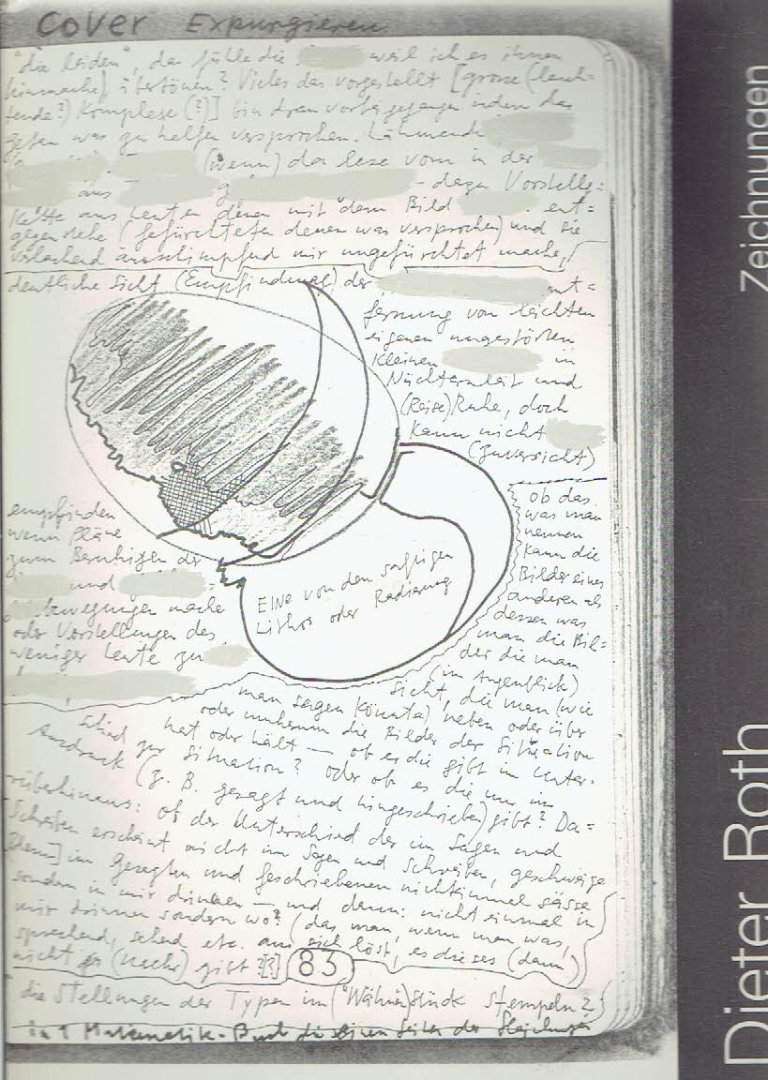 Cover Expurgieren
"die leiden", da fülle die weil ich es ihnen
hinmache) übertönen? Vieles das vorgestellt [grosse (leuch=
tende?) Komplexe (?)] bin dran vorbeigegangen indem das
geben was zu helfen versprochen. Lähmende
(wenn) da lese vom in der
aus - dazu Vorstellg:
Kette aus Leuten denen mit dem Bild ent=
gegen stehe (gefürchteten denen was versprochen) und sie
verlachend ausschimpfend mir ungefürchtet mache,
deutliche Sicht (Empfindung) der ent=
fernung von leichten
eigenen ungestörten
kleinen in
Nüchternheit und
(Reise)Ruhe, doch
kann nicht
(Zuversicht)
empfinden
wenn Pläne
zum Beruhigen der
und
bewegungen mache
oder Vorstellungen des
weniger Leute zu
EINE von den saftigen
Lithos oder Radierung
ob das
was man
nennen
kann die
Bilder eines
anderen als
dessen was
man die Bil=
der die man
(im Augenblick)
sieht, die man (wie
man sagen könnte) neben oder über
oder umherum die Bilder der Situation
hat oder hält — ob es die gibt im Unter-
schied zur Situation? oder ob es die nur im
Ausdruck (z. B. gesagt und hingeschrieben) gibt? Da=
rüberhinaus: ob der Unterschied der im Sagen und
Schreiben erscheint nicht im Sagen und Schreiben, geschweige
[denn] im Gesagten und Geschriebenen nichteinmal sässe
sondern in mir drinnen — und dann: nicht einmal in
mir drinnen sondern wo? (das man, wenn man was,
sprechend, sehend etc. aus sich löst, es dieses (dann)
nicht (mehr) gibt
83
die Stellungen der Typen im (Wähne)Stück stempeln?
In 1 Matematik-Buch die einen Seiten der
Zeichnungen
Dieter Roth